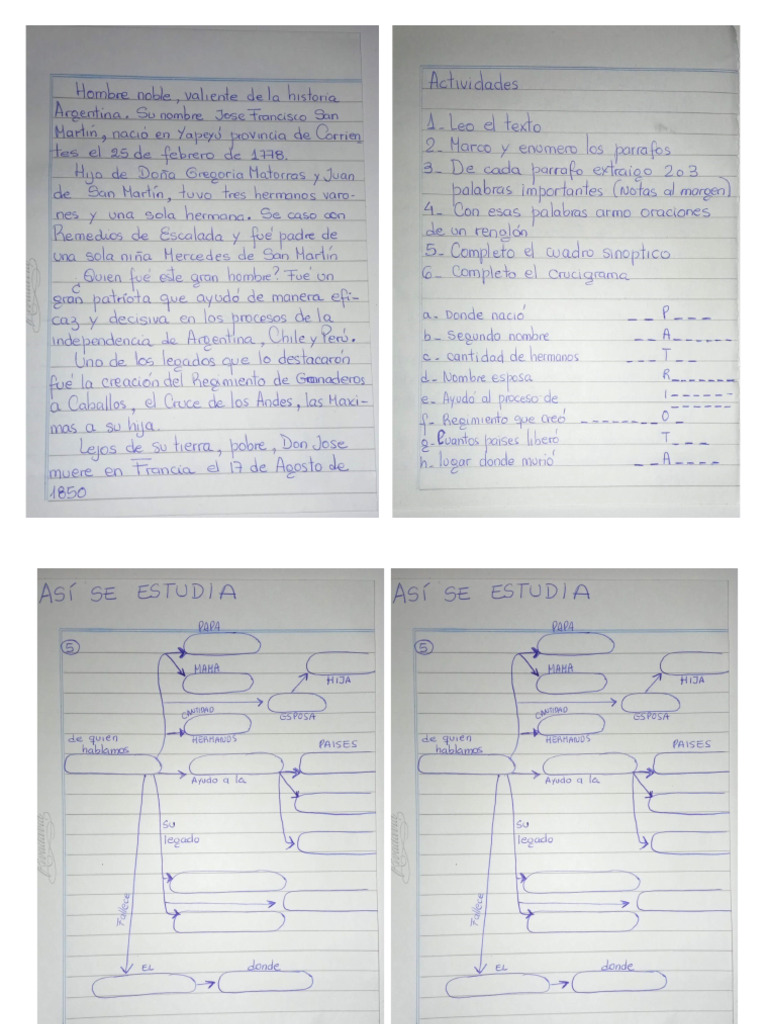 Hombre noble, valiente de la historia
Argentina. Su nombre Jose Francisco San
Martin, nació en Yapeyú provincia de Corrien
tes el 25 de febrero de 1778.
Hijo de Doña Gregoria Matorras y Juan
de San Martín, tuvo tres hermanos varo-
nes y una sola hermana. Se caso con
Remedios de Escalada y fué padre de
una sola niña Mercedes de San Martín
¿Quien fué este gran hombre? Fué un
gran patriota que ayudó de manera efi-
caz y decisiva en los procesos de la
independencia de Argentina, Chile y Perú.
Uno de los legados que lo destacarón
fué la creación del Regimiento de Granaderos
a Caballos, el Cruce de los Andes, las Maxi-
mas a su hija.
Lejos de su tierra, pobre, Don Jose
muere en Francia el 17 de Agosto de
1850
Actividades
1_ Leo el texto
2_ Marco y enumero los parrafos
3_ De cada parrafo extraigo 2 o 3
palabras importantes (Notas al margen)
4_ Con esas palabras armo oraciones
de un renglón
5_ Completo el cuadro sinoptico
6_ Completo el crucigrama
a_ Donde nació _ _ P _ _ _
b_ Segundo nombre _ A _ _ _ _ _ _
c_ cantidad de hermanos _ _ _ T _ _
d_ Nombre esposa R _ _ _ _ _ _ _
e_ Ayudó al proceso de I _ _ _ _ _ _ _
f_ Regimiento que creó _ _ _ _ _ _ _ _ O _
g_ Cuantos paises liberó T _ _ _
h_ lugar donde murió _ _ A _ _ _ _
ASÍ SE ESTUDIA
5
PAPA
MAMA
HIJA
CANTIDAD
ESPOSA
HERMANOS
de quien
hablamos
PAISES
Ayudo a la
su
legado
Fallece
EL
donde
ASÍ SE ESTUDIA
5
PAPA
MAMA
HIJA
CANTIDAD
ESPOSA
HERMANOS
de quien
hablamos
PAISES
Ayudo a la
su
legado
Fallece
EL
donde